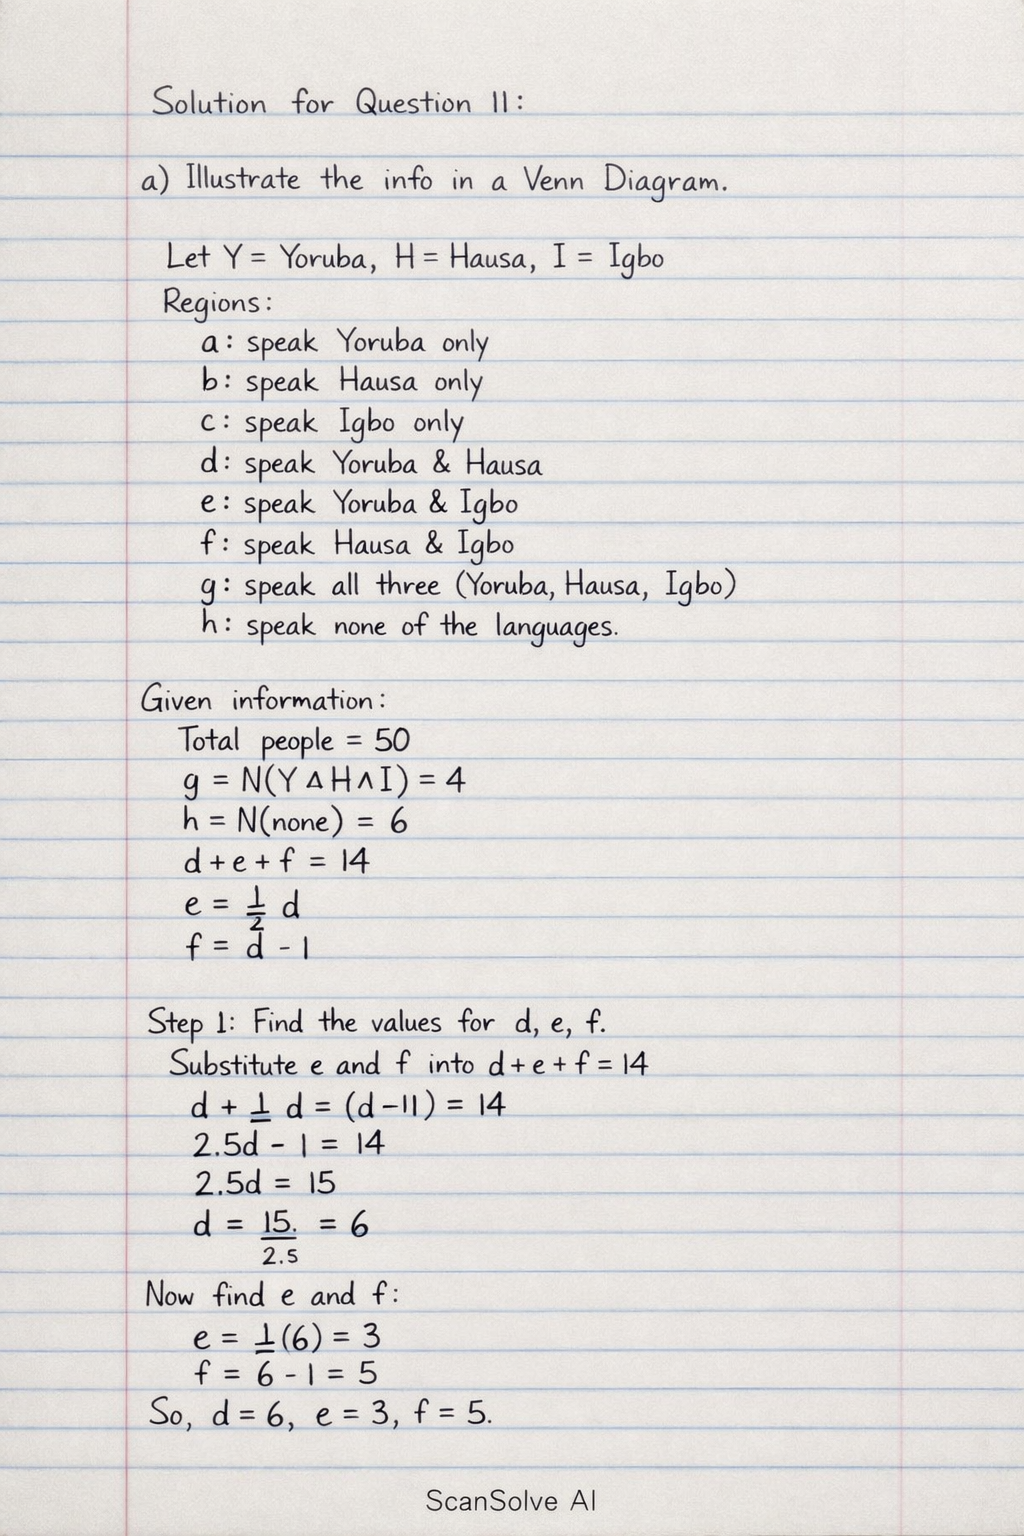 Solution for Question 11:
a) Illustrate the info in a Venn Diagram.
Let Y = Yoruba, H = Hausa, I = Igbo
Regions:
a: speak Yoruba only
b: speak Hausa only
c: speak Igbo only
d: speak Yoruba & Hausa
e: speak Yoruba & Igbo
f: speak Hausa & Igbo
g: speak all three (Yoruba, Hausa, Igbo)
h: speak none of the languages.
Given information:
Total people = 50
g = N(Y ∆ H ∧ I) = 4
h = N(none) = 6
d + e + f = 14
e = 1/2 d
f = d - 1
Step 1: Find the values for d, e, f.
Substitute e and f into d + e + f = 14
d + 1 d = (d - 11) = 14
2.5d - 1 = 14
2.5d = 15
d = 15. / 2.5 = 6
Now find e and f:
e = 1 (6) = 3
f = 6 - 1 = 5
So, d = 6, e = 3, f = 5.
ScanSolve AI